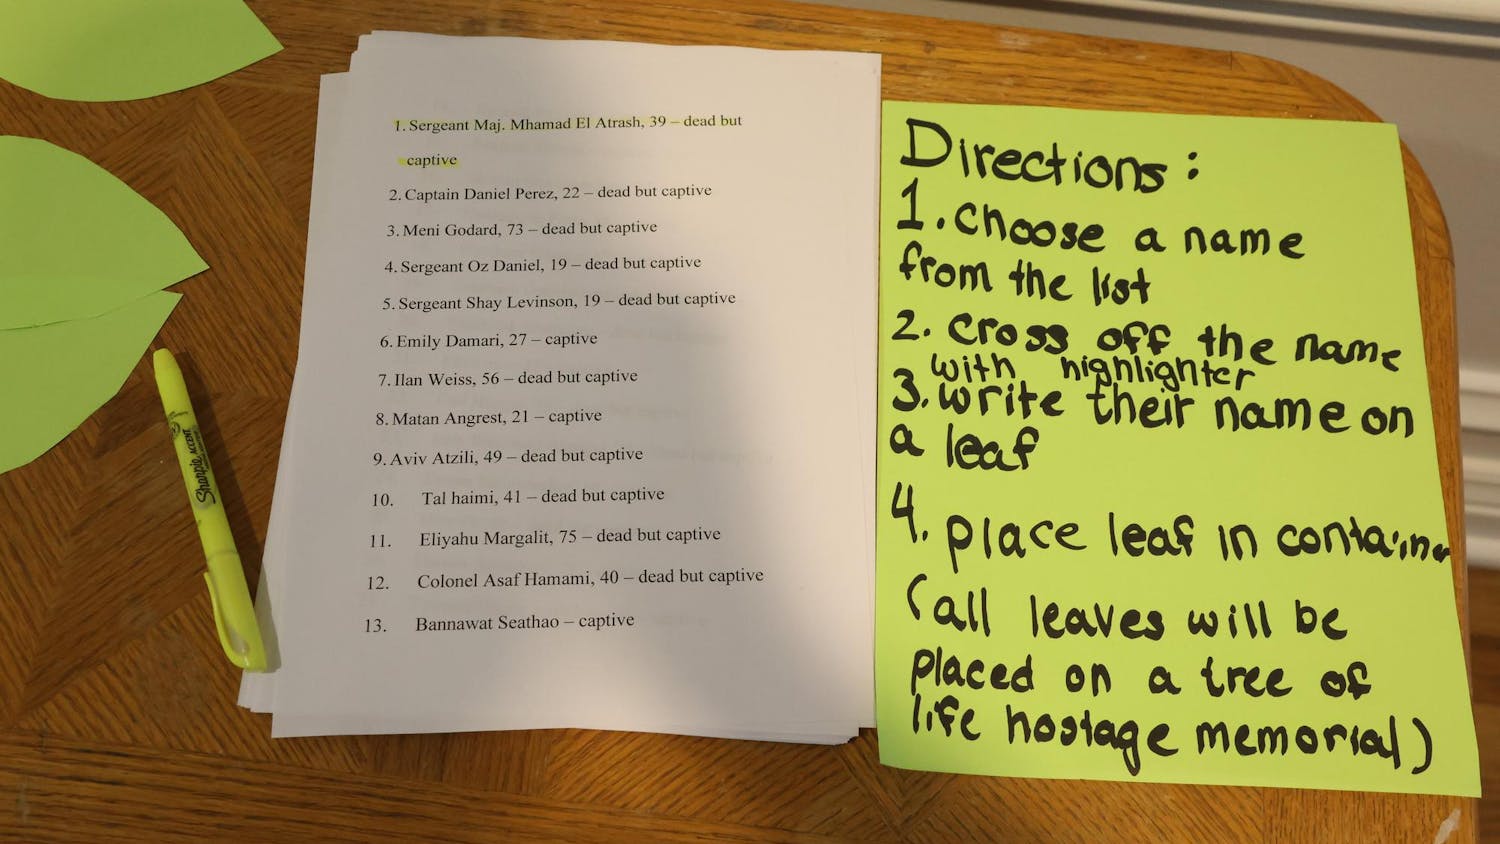 1. Sergeant Maj. Mhamad El Atrash, 39 – dead but
captive
2. Captain Daniel Perez, 22 – dead but captive
3. Meni Godard, 73 – dead but captive
4. Sergeant Oz Daniel, 19 – dead but captive
5. Sergeant Shay Levinson, 19 – dead but captive
6. Emily Damari, 27 – captive
7. Ilan Weiss, 56 – dead but captive
8. Matan Angrest, 21 – captive
9. Aviv Atzili, 49 – dead but captive
10. Tal haimi, 41 – dead but captive
11. Eliyahu Margalit, 75 – dead but captive
12. Colonel Asaf Hamami, 40 – dead but captive
13. Bannawat Seathao – captive
Sharpie ACCENT
Directions:
1. choose a name
from the list
2. cross off the name
with highlighter
3. write their name on
a leaf
4. place leaf in container
(all leaves will be
placed on a tree of
life hostage memorial)